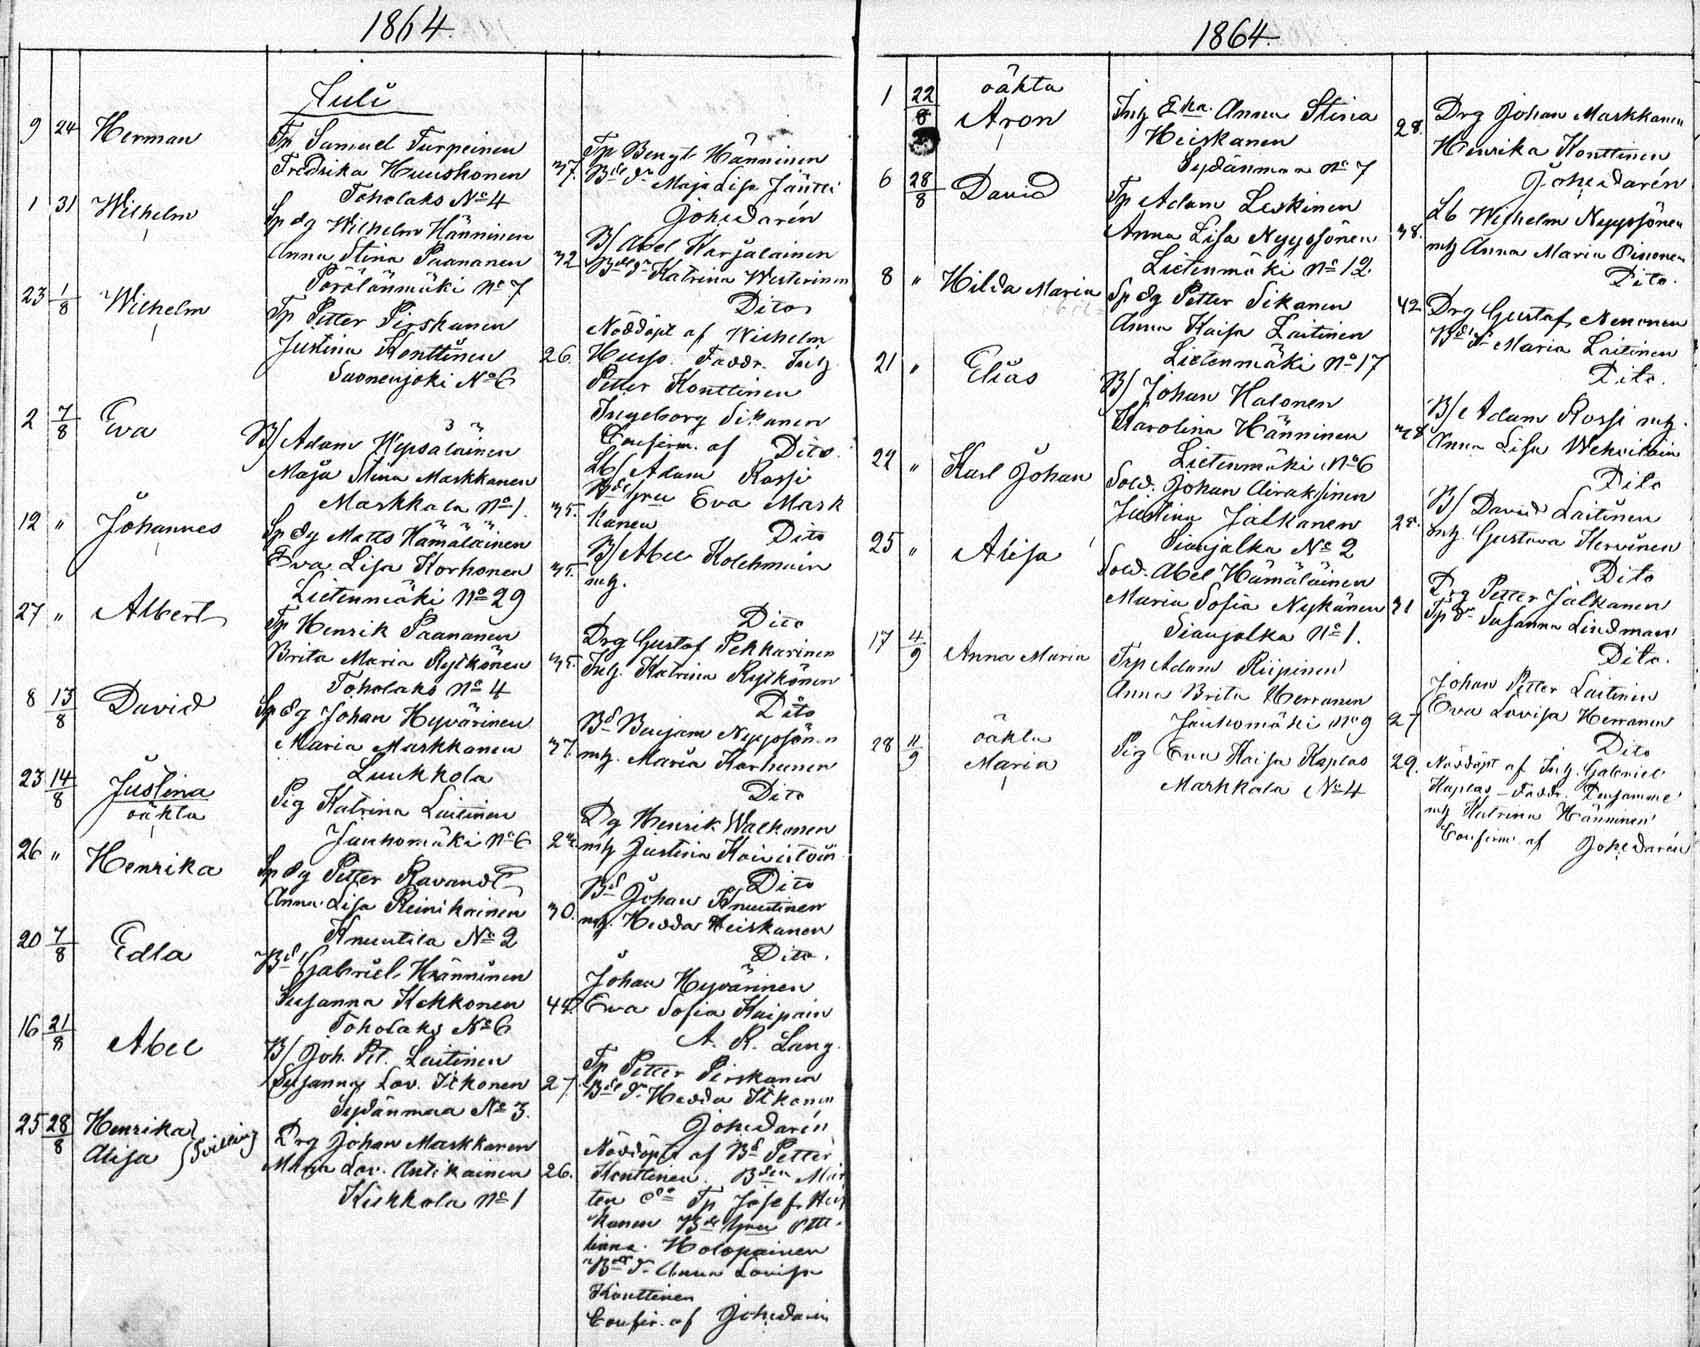 1864.
Juli
9 24 Herman
Tp Samuel Turpeinen
Fredrika Huuskonen 37.
Toholaks No 4
Tp Bengt Hänninen
Bde dr Maja Lisa Jäntti
Johedarén
1 31 Wilhelm
Sp dg Wilhelm Hänninen
Anna Stina Paananen 32
Pörölänmäki No 7
B/ Abel Karjalainen
Bde dr Katrina Westerinen
Dito
23 1/8 Wilhelm
Tp Petter Pirskanen
Justina Konttinen 26.
Suonenjoki No 6
Nöddöpt af Wilhelm
Husso. Faddr. Inh
Petter Konttinen
Ingeborg Sikanen
Confirm. af Dito.
2 7/8 Eva
B/ Adam Hypäläinen
Maja Stina Markkanen
Markkala No 1. 35.
Lb/ Adam Rossi
Bde hru Eva Mark
kanen Dito
12 " Johannes
Sp dg Matts Hämäläinen
Eva Lisa Korhonen 35.
Lietenmäki No 29
B/ Abel Kolehmain
mh.
Dito
27 " Albert
Tp Henrik Paananen
Brita Maria Rytkönen 35.
Toholaks No 4
Drg Gustaf Pekkarinen
Inh. Katrina Rytkönen
Dito
8 13/8 David
Sp dg Johan Hyvärinen
Maria Markkanen 37.
Luukkola
Bd Benjam Nyyssönen
mh. Maria Karhunen
Dito
23 14/8 Justina
oäkta
Pig Katrina Laitinen
Jauhomäki No 6
Dg Henrik Walkonen
mh Justina Koivistoin
Dito
26 " Henrika
Sp dg Petter Ravandt
Anna Lisa Reinikainen 30.
Knuutila No 2
Bd Johan Knuutinen
mh. Hedda Heiskanen
Dito.
20 7/8 Edla
Bd Gabriel Hänninen
Susanna Kekkonen
Toholaks No 6
Johan Hyvärinen
Eva Sofia Kuipain
A. R. Lang.
16 21/8 Abel
B/ Joh. Pet. Laitinen
Susanna Lov. Itkonen 27.
Sydänmaa No 3.
Tp Petter Pirskanen
Bde dr Hedda Itkonen
Johedarén
25 28/8 Henrika
Alisa } Tvilling
Drg Johan Markkanen
Maria Lov. Antikainen 26.
Kirkkola No 1
Nöddöpt af Bd Petter
Konttinen. Bden Mår
ten do Tp Josef Hus
kanen Bde hru Otti
liana. Holopainen
Bde dr Anna Lovisa
Konttinen
Confir. af Johedarén
1864.
1 22/8 oäkta
Aron
Inh Eka. Anna Stina
Heiskanen 28.
Sydänmaa No 7
Drg Johan Markkanen
Henrika Konttinen
Johedarén
6 28/8 David
Tp Adam Leskinen
Anna Lisa Nyyssönen 38.
Lietenmäki No 12.
Lb Wilhelm Nyyssönen
mh Anna Maria Pinonen
Dito.
8 " Hilda Maria
Sp dg Petter Sikanen 42
Anna Kaisa Laitinen
Lietenmäki No 17
Drg Gustaf Nenonen
Bde dr Maria Laitinen
Dito.
21 " Elias
B/ Johan Halonen
Karolina Hänninen
Lietenmäki No 6
B/ Adam Rossi mh.
Anna Lisa Wehviläin
Dito
22 " Karl Johan
Sold. Johan Airaksinen
Justina Jalkanen
Sianjalka No 2
B/ David Laitinen
mh. Gustava Hervinen
Dito
25 " Alisa
Sold. Abel Hämäläinen
Maria Sofia Nykänen 31
Sianjalka No 1.
Drg Petter Jalkanen
Tp dr Susanna Lindman
Dito.
17 4/9 Anna Maria
Trp Adam Riipinen
Anna Brita Herranen
Jauhomäki No 9 27
Johan Petter Laitinen
Eva Lovisa Herranen
Dito
28 11/9 oäkta
Maria
Pig Eva Kaisa Kaplas 29.
Markkala No 4
Nöddöpt af Inh. Gabriel
Kaplas - Faddr. Densamme
mh Katrina Hänninen
Confirm. af Johedarén